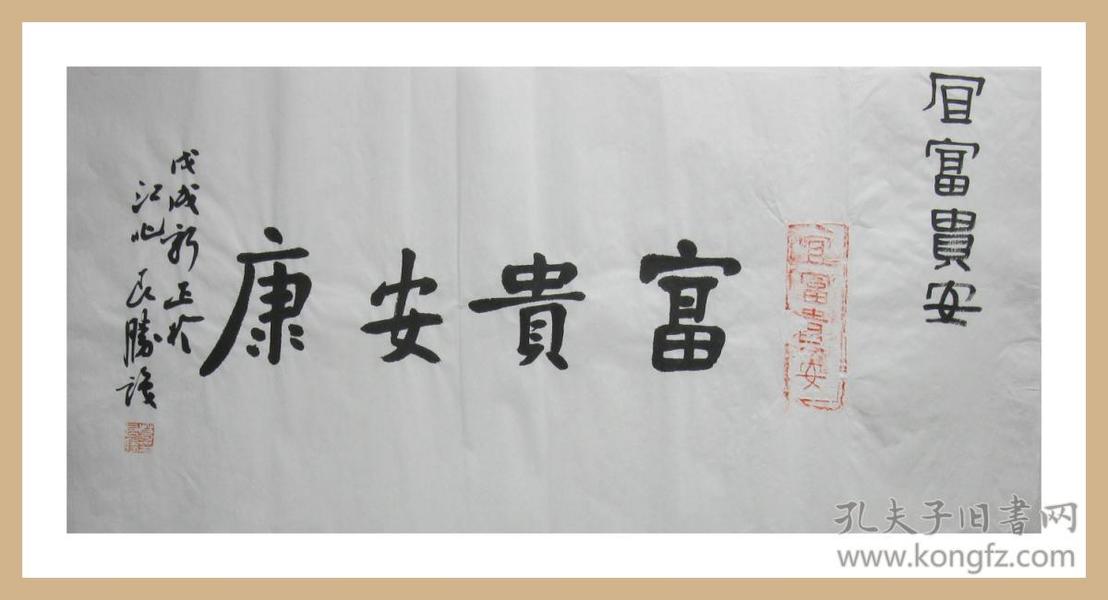 宜富貴安
宜富貴安
富貴安康
戊戌新正於
江北民勝讀
孔夫子旧書网
www.kongfz.com